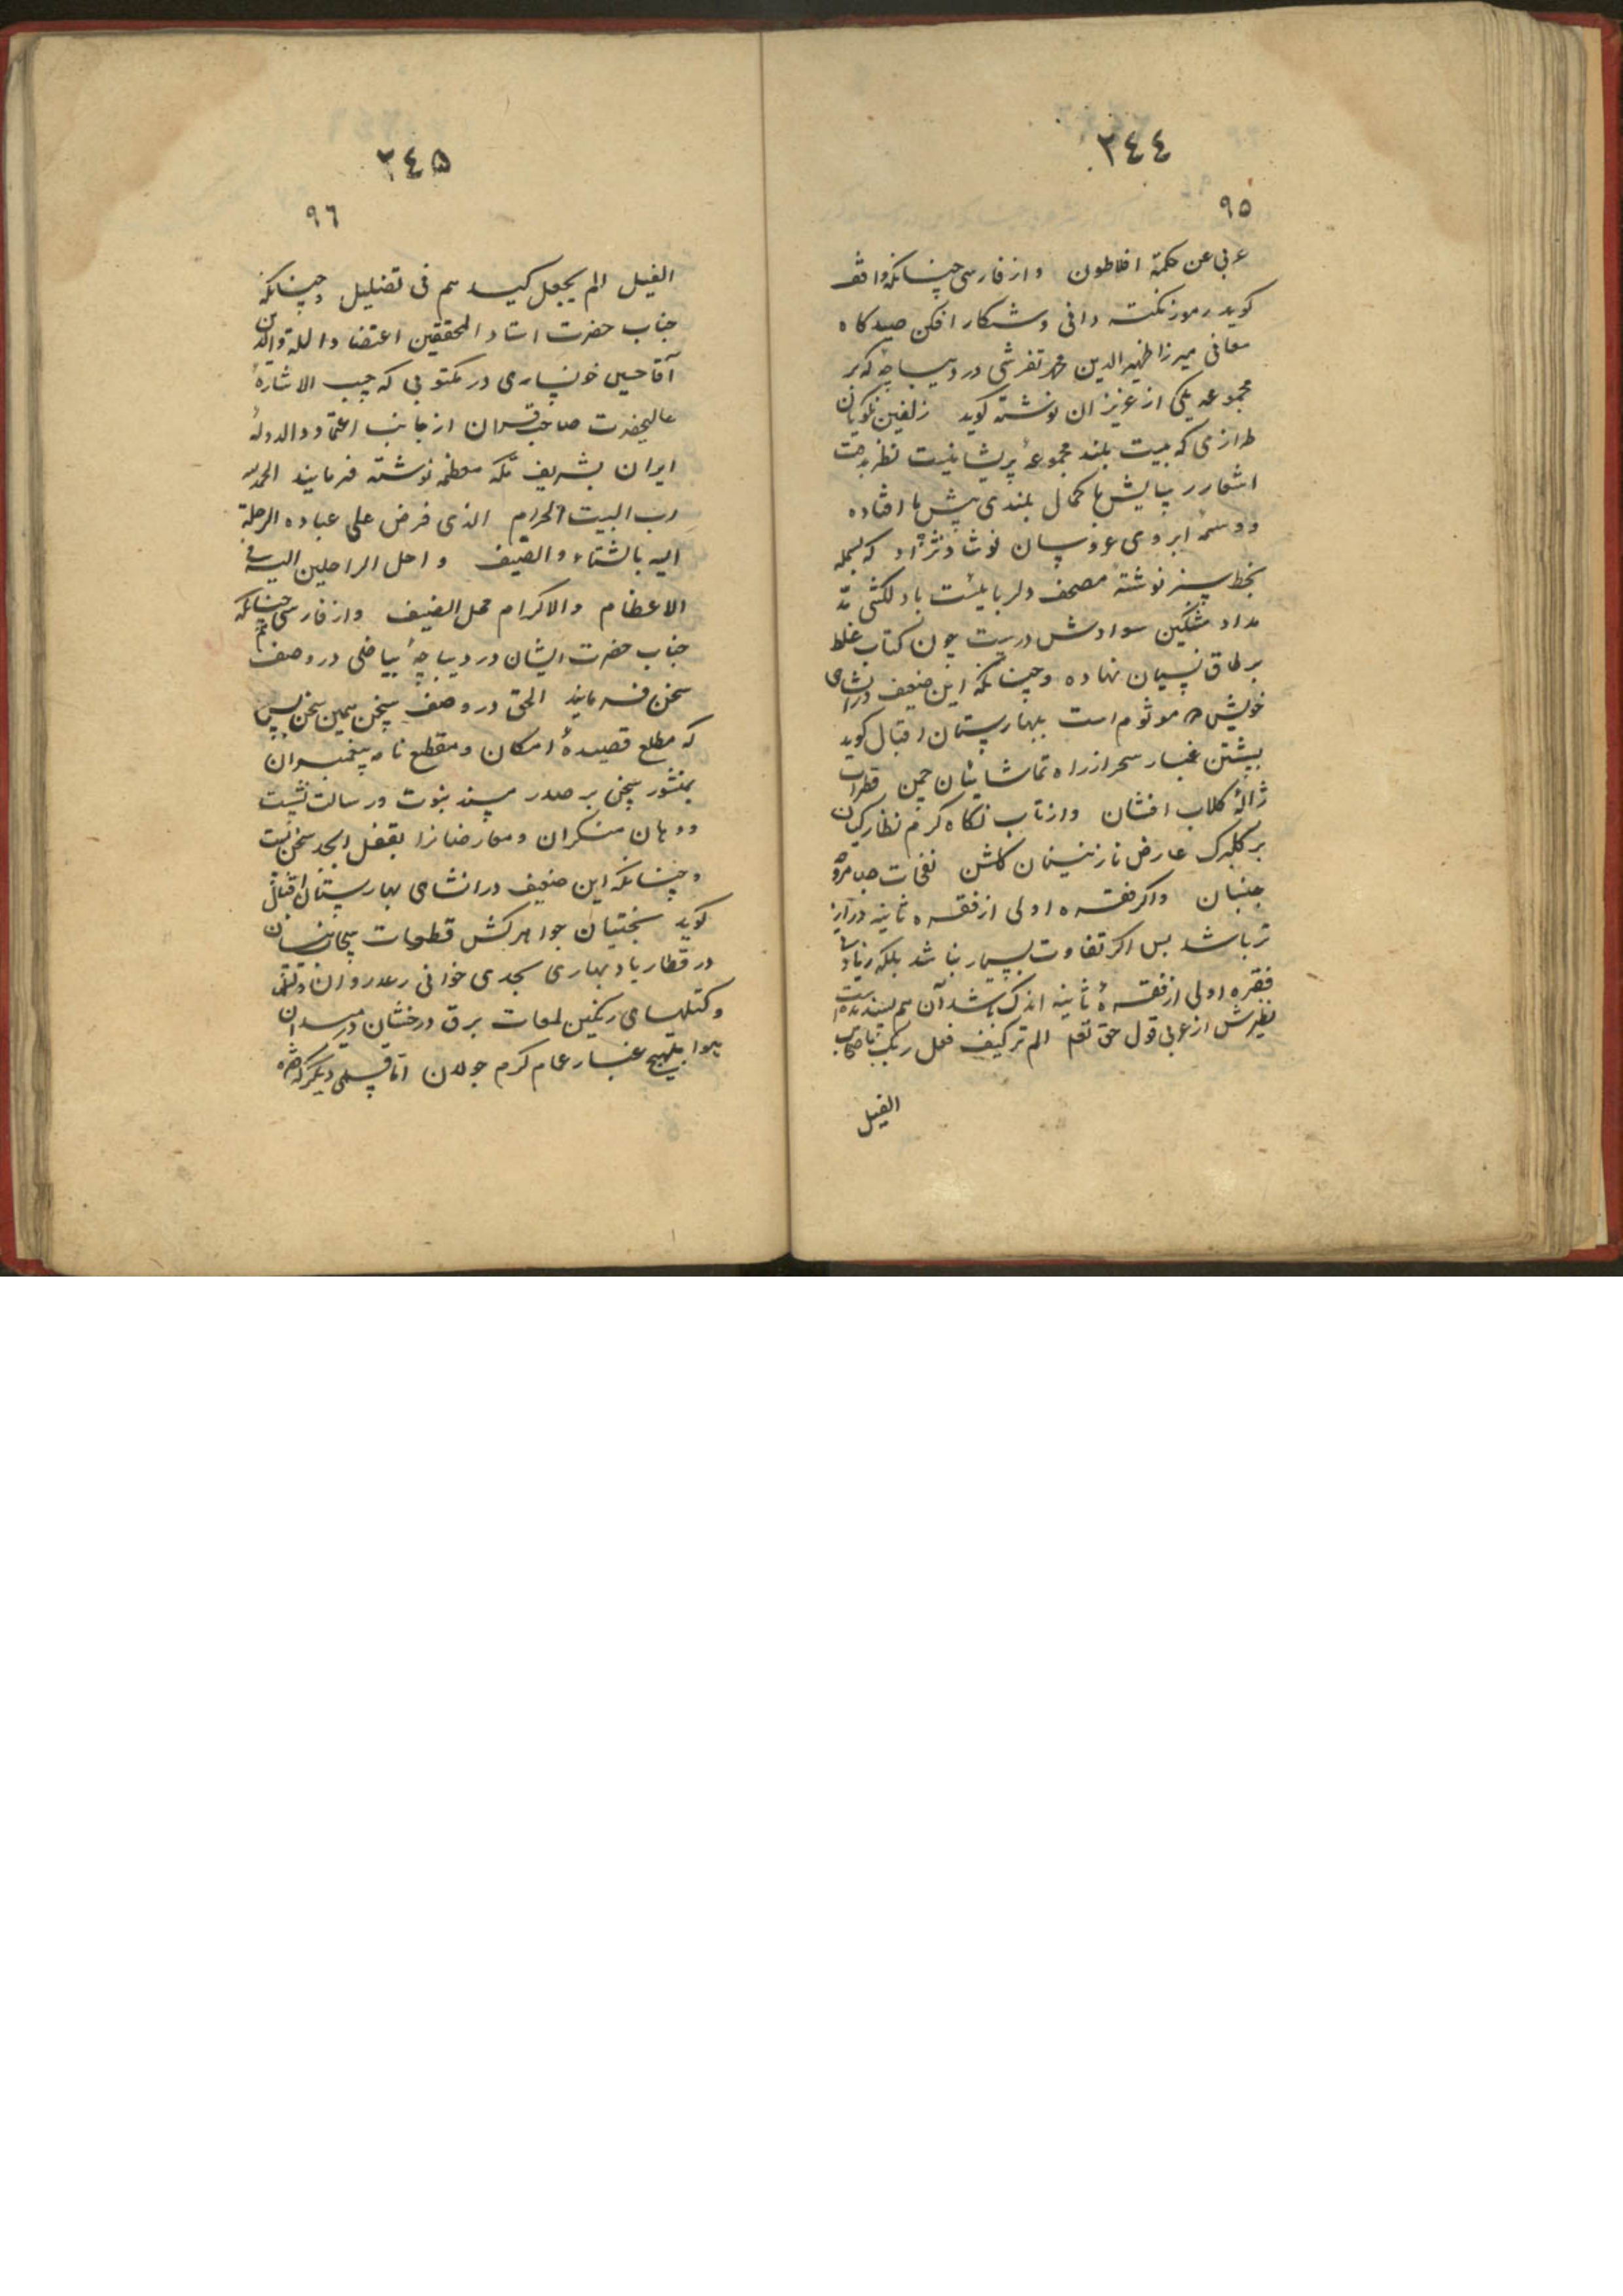 ٢٤٤
٩٥
عربی عن حکمة افلاطون و از فارسی چنانکه واقف
کوید رموز نکته دانی و شکار افکن صیدکاه
معانی میرزا ظهیرالدین محمد تفرشی در دیباچهٔ که بر
مجموعه یکی از عزیزان نوشته کوید زلفین نکویان
طرازی که بیت بلند مجموعهٔ پریشانیست نظر
اشعار در پایش با کمال بلندی پیش پا افتاده
و وسمهٔ ابروی عروسان نوشاد نژاد که بسمله
بخط سبز نوشتهٔ مصحف دلرباییست با دلکشی
مداد مشکین سوادش درست چون کتاب غلط
بر طاق نسیان نهاده و چنانکه این ضعیف در انشای
خویش که موثوم است ببهارستان اقبال کوید
بیشتن غبار سحر از راه تماشائیان چمن قطرات
ژالهٔ کلاب افشان و از تاب نکاه کرم نظارکیان
بر کلبرک عارض نازنینان کلشن نفحات صبا مروحه
جنبان و اکر فقره اولی از فقره ثانیه دراز
تر باشد بس اکر تفاوت بسیار نباشد بلکه زیادتی
فقره اولی از فقرهٔ ثانیه اندک باشد آن هم پسندیده است
نظیرش از عربی قول حق تعم الم تر کیف فعل ربک باصحاب
الفیل
٢٤٥
٩٦
الفیل الم یجعل کیدهم فی تضلیل و چنانکه
جناب حضرت استاد المحققین اعتضادا للملة والدین
آقا حسین خونساری در مکتوبی که حسب الاشارهٔ
عالیحضرت صاحبقران از جانب اعتماد الدولهٔ
ایران بشریف مکه معظمه نوشته فرمایند الحمد لله
رب البیت الحرام الذی فرض علی عباده الرحلة
الیه بالشتاء والصیف و احل الراحلین الیه فی
الاعظام والاکرام محل الضیف و از فارسی چنانکه
جناب حضرت ایشان در دیباچهٔ بیاضی در وصف
سخن فرمایند الحق در وصف سخن همین سخن بس
که مطلع قصیدهٔ امکان و مقطع نامه پیغمبران
بمنشور سخن بر صدر مسند نبوت و رسالت نشست
و دهان منکران و معارضانرا بقفل ابجد سخن بست
و چنانکه این ضعیف در انشای بهارستان اقبال
کوید بختیان جواهرکش قطعات سحاب نیسان
در قطار باد بهاری بحدی خوانی رعد روان
و کتلهای رنکین لمعات برق درخشان در میدان
هوا بتهییج غبار غمام کرم جولان اما قسمی دیکر که